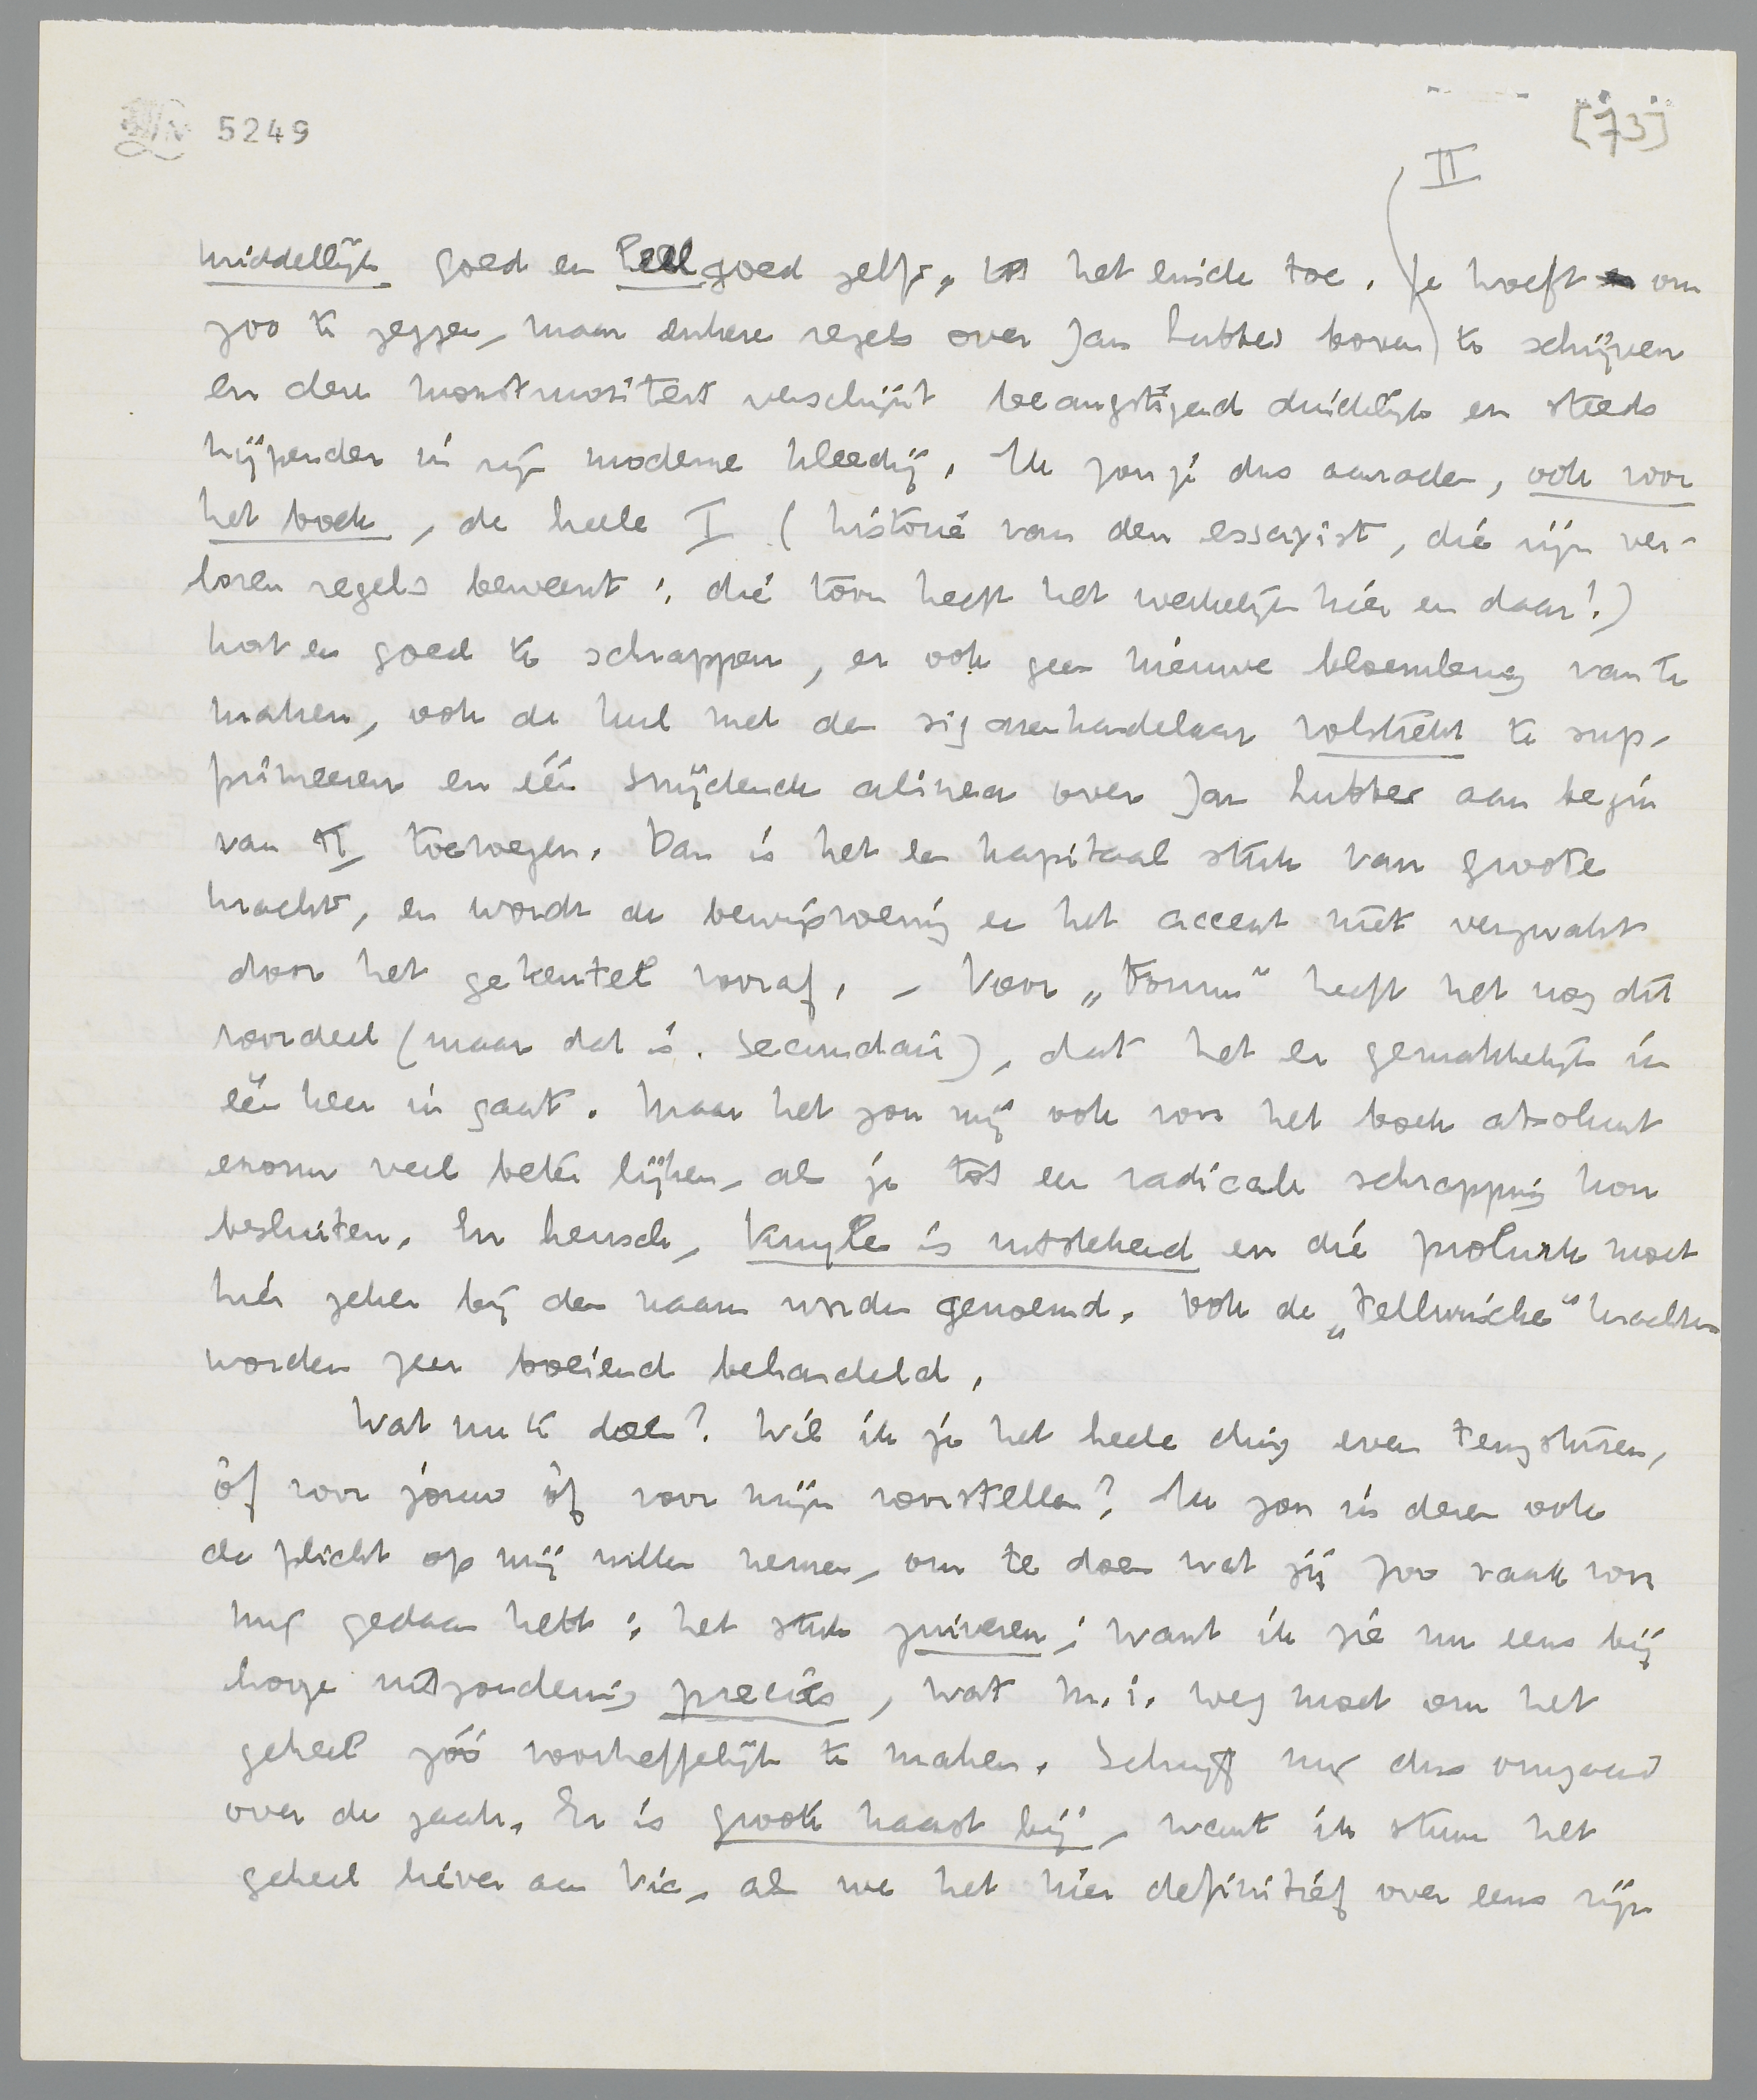 5249
[73]
II
middellijk goed en heel goed zelfs, tot het einde toe. Je hoeft om
zoo te zeggen, maar enkele regels over Jan Lubbes boven te schrijven
en deze monstruositeit verschijnt beangstigend duidelijk en steeds
hijgender in zijn moderne kleedij. Ik zou je dus aanraden, ook voor
het boek, de heele I (historie van den essayist, die zijn ver-
loren regels beweent; die toon heeft het werkelijk hier en daar!)
kort en goed te schrappen, er ook geen nieuwe bloemlezing van te
maken, ook de hul met den sigarenhandelaar volstrekt te sup-
primeeren en één snijdende alinea over Jan Lubbes aan begin
van II toevoegen. Dan is het een kapitaal stuk van groote
kracht, en wordt de bewijsvoering en het accent niet verzwakt
door het gekeutel vooraf. - Voor „Forum" heeft het nog dit
voordeel (maar dat is secundair), dat het er gemakkelijk in
één keer in gaat. Maar het zou mij ook voor het boek absoluut
enorm veel beter lijken, als je tot een radicale schrapping kon
besluiten. En heusch, Kuyle is uitstekend en die prolurk moet
hier zeker bij den naam worden genoemd. Ook de „tellurische" krachten
worden zeer boeiend behandeld.
Wat nu te doen? Wil ik je het heele ding even terugsturen,
òf voor jouw òf voor mijn voorstellen? Ik zou in dezen ook
de plicht op mij willen nemen, om te doen wat jij zoo vaak voor
mij gedaan hebt: het stuk zuiveren; want ik zie nu eens bij
hooge uitzondering precies, wat m.i. weg moet om het
geheel zóó voortreffelijk te maken. Schrijf mij dus omgaand
over de zaak. Er is groote haast bij, want ik stuur het
geheel liever aan Vic, als we het hier definitief over eens zijn